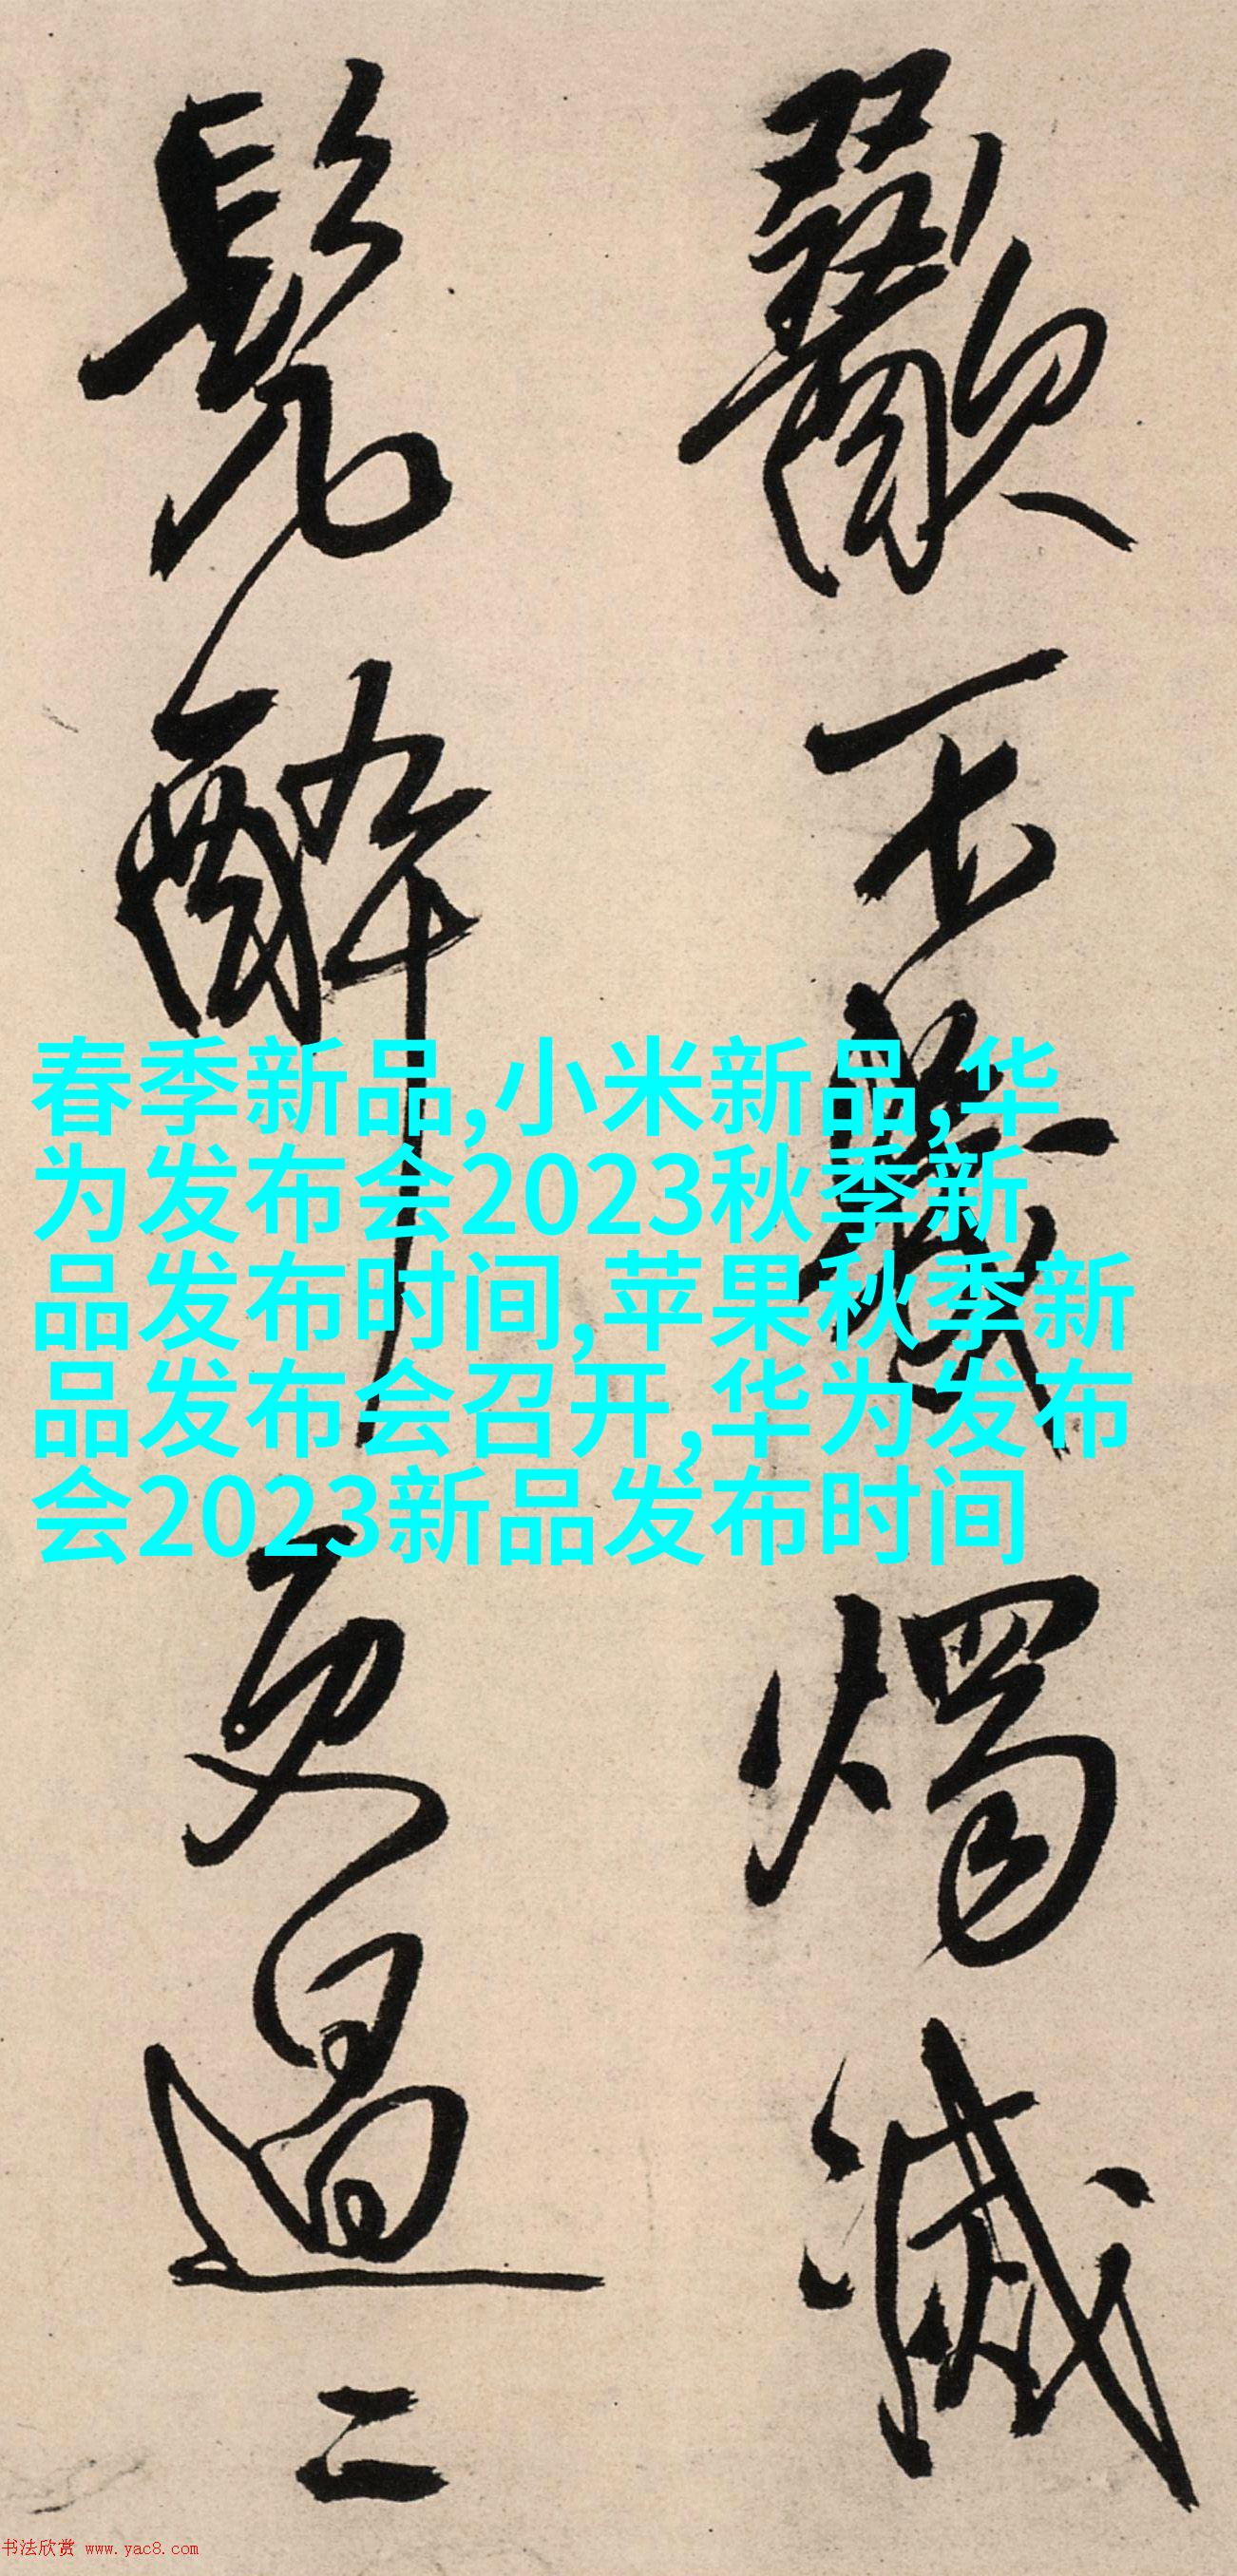 不燭滅
髡醉更過二
春季新品,小米新品,华
为发布会2023秋季新
品发布时间,苹果秋季新
品发布会召开,华为发布
会2023新品发布时间
书法欣赏 www.yac8.com